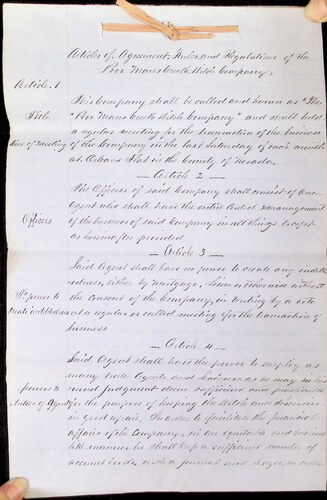 Articles of Agreement, Rules, and Regulations of the
Poor Mans Creek Ditch Company,
Article. 1
This Company shall be called and known as "The
Title "Poor Mans Creek Ditch Company" and shall hold
a regular meeting for the transaction of the business
time of Meeting of the Company on the last Saturday of each month
at Orleans Flat in the County of Nevada.
— Article 2 —
The Officers of said Company shall consist of One
Agent who shall have the entire Control & management
Officers of the business of said Company in all things except
as hereinafter provided
— Article 3 —
Said Agent shall have no power to create any indebt
edness, either by Mortgage, or otherwise without
No power to the consent of the Company, in writing by a vote
create indebtedness at a regular or called meeting for the transaction of
business
— Article 4 —
Said Agent shall have the power to employ as
many Agents and as may in his
powers & own judgment deem sufficient and
duties of Agent for the purpose of keeping the ditch and
in good repair, In order to facilitate the financial
affairs of the Company, in an equitable and business
like manner he shall keep a sufficient number of
account books, such a journal and